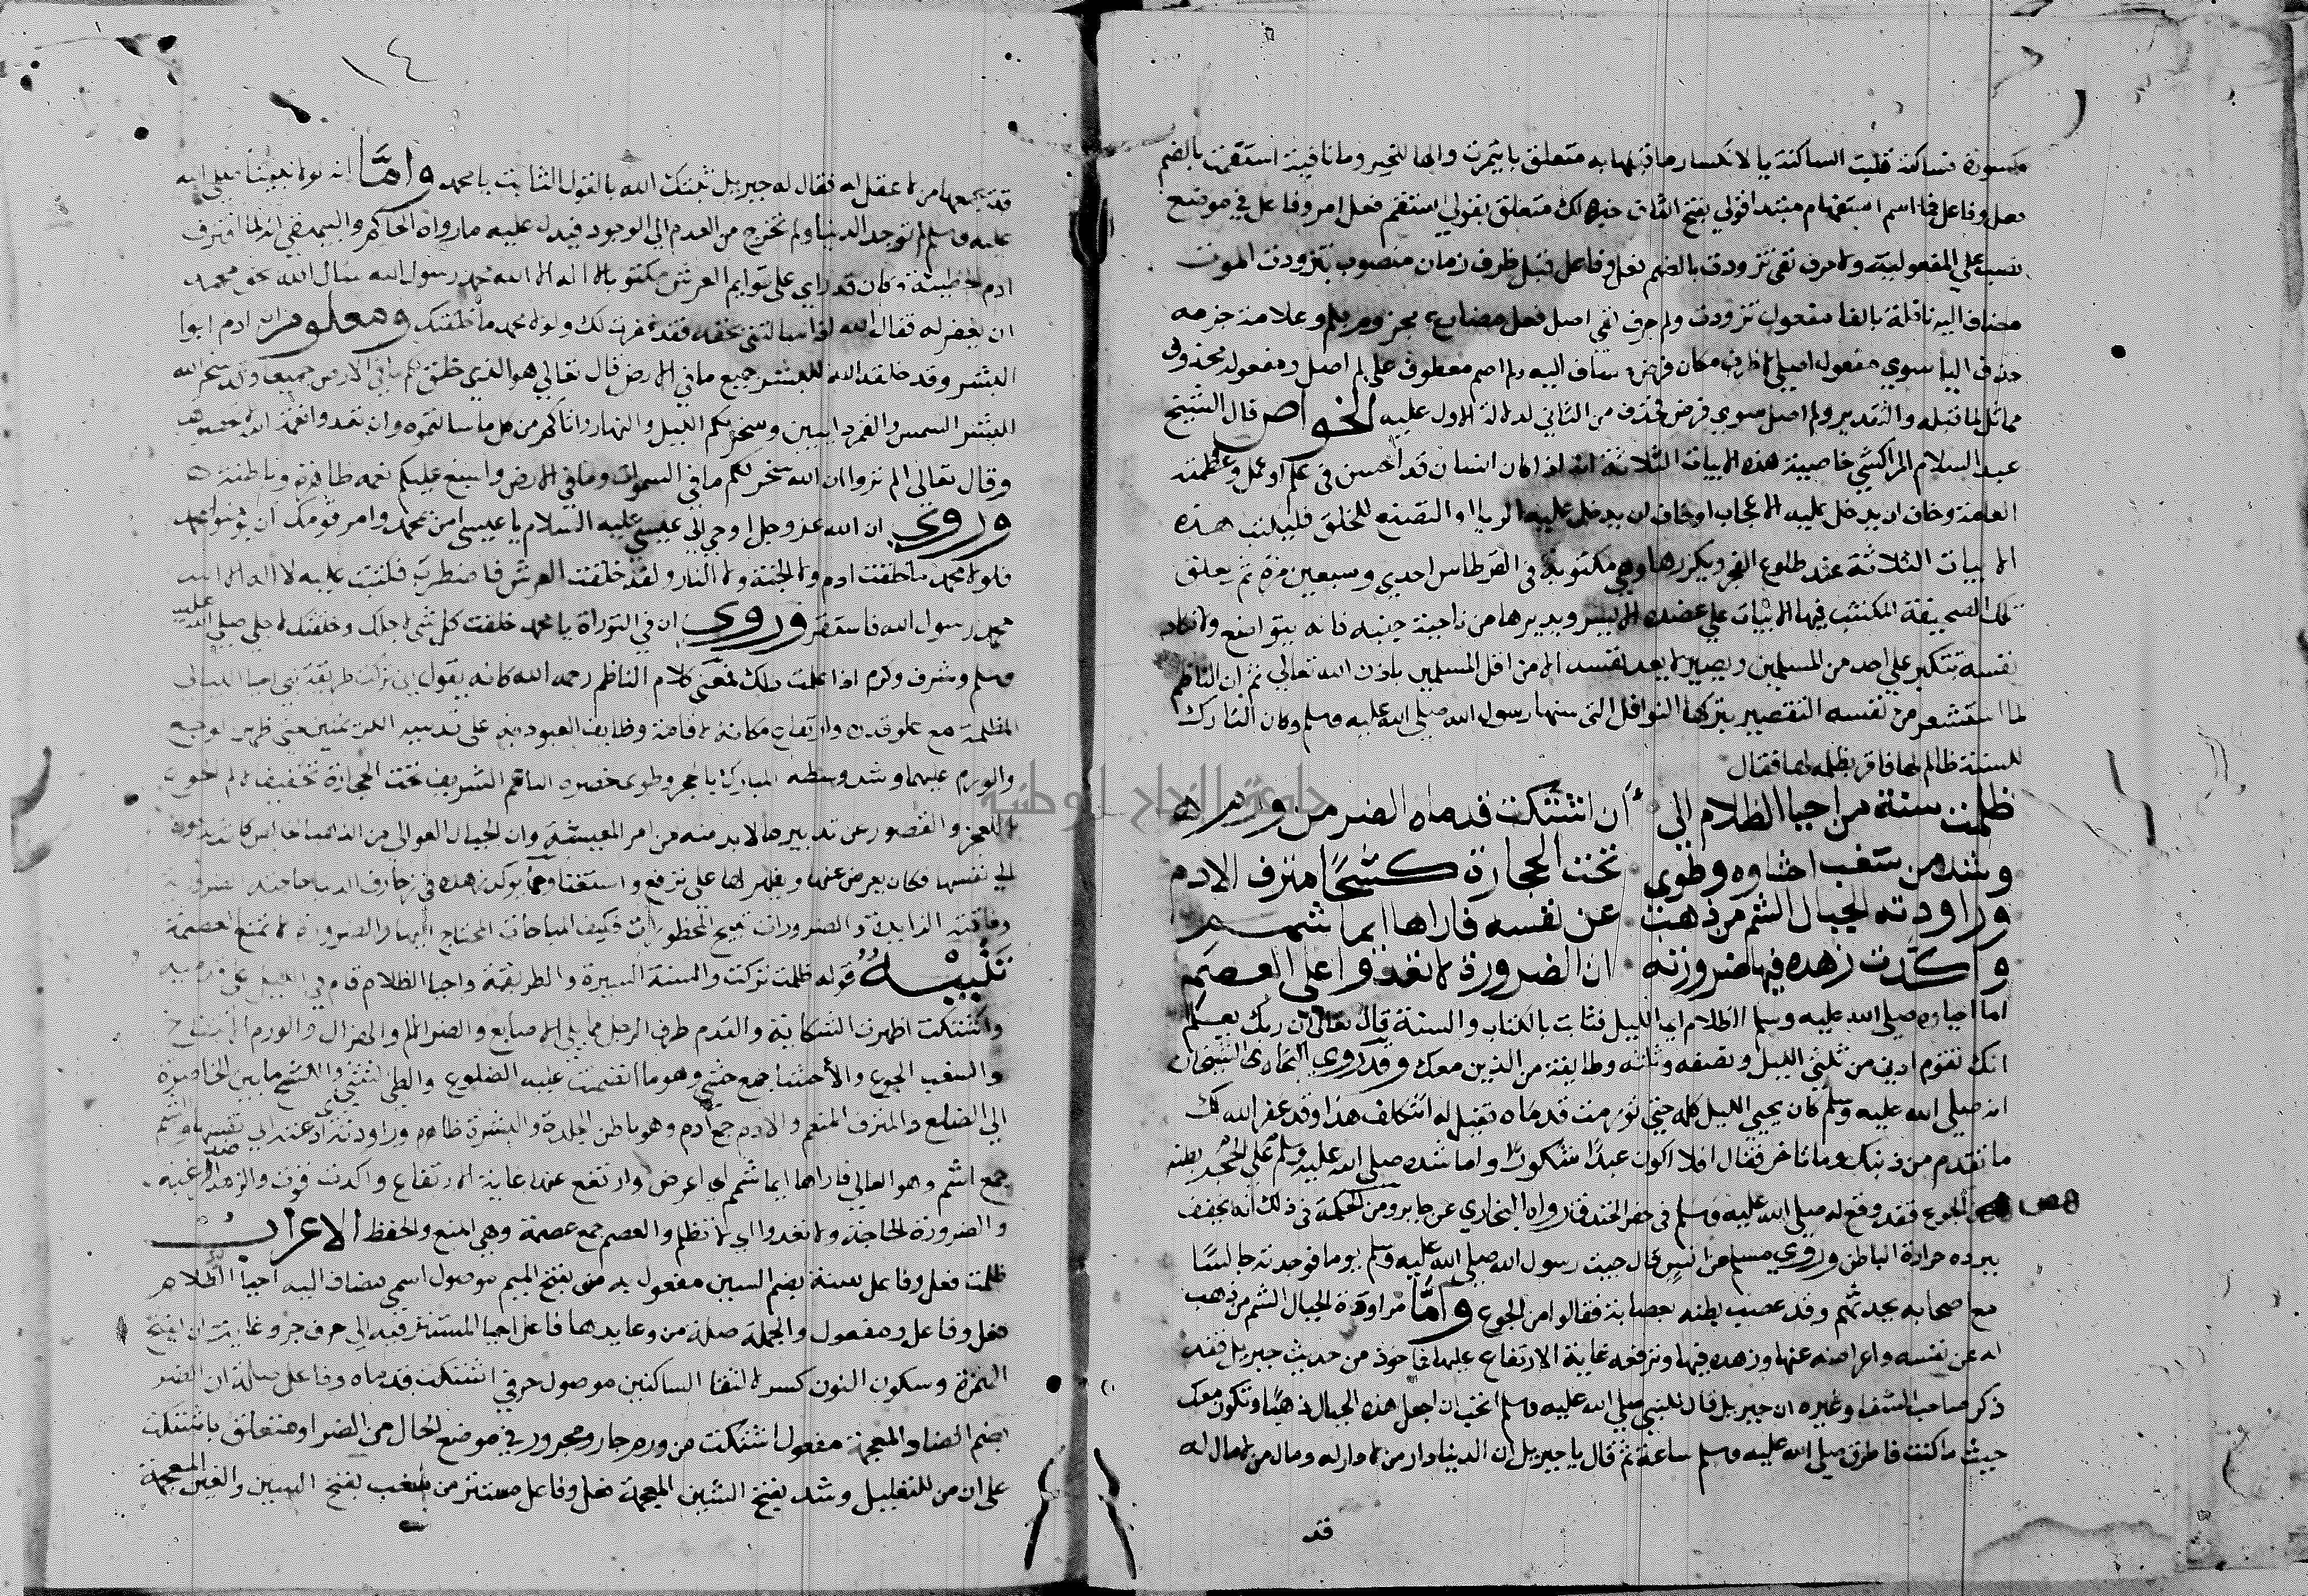 مكسورة فساكنة قلبت الساكنة يا لانكسار ما قبلها به متعلق بايتمرت والها للخير وما نافية استقمت بالضم
فعل وفاعل فما اسم استفهام مبتدا قولي بفتح القاف خبره لك متعلق بقولي استقم فعل امر وفاعل في موضع
نصب علي المفعولية ولا حرف نفي تزودت بالضم فعل وفاعل قبل ظرف زمان منصوب بتزودت الموت
مضاف اليه نافلة بالفا مفعول تزودت ولم حرف نفي اصل فعل مضارع مجزوم بلم وعلامة جزمه
حذف اليا سوي مفعول اصلي لا ظرف مكان فرض مضاف اليه ولم اصم معطوف علي لم اصل ومفعوله محذوف
مماثل لما قبله والتقدير ولم اصم سوي فرض فحذف من الثاني لدلالة الاول عليه الخواص قال الشيخ
عبد السلام المراكشي خاصية هذه الابيات الثلاثة انه اذا كان انسان قد احسن في علم او عمل وعظمته
العامة وخاف ان يدخل عليه الاعجاب او خاف ان يدخل عليه الريا او التصنع للخلق فليكتب هذه
الابيات الثلاثة عند طلوع الفجر ويكررها وهي مكتوبة في القرطاس احدي وسبعين مرة ثم يعلق
تلك الصحيفة المكتتب فيها الابيات علي عضده الايسر ويديرها من ناحية جنبه فانه يتواضع ولا تكاد
نفسه تتكبر علي احد من المسلمين ويصير لا يعد نفسه الا من اقل المسلمين باذن الله تعالي ثم ان الناظم
لما استشعر من نفسه التقصير بتركها النوافل التي سنها رسول الله صلي الله عليه وسلم وكان التارك
للسنة ظالم لها فاقر بظلمه لها فقال
ظلمت سنة من احيا الظلام الي أن اشتكت قدماه الضر من ورم
وشد من سغب احشاه وطوي تحت الحجارة كشحًا مترف الادم
وراودته الجبال الشم من ذهب عن نفسه فاراها ايما شمم
واكدت زهده فيها ضرورته ان الضرورة لا تعدوا علي العصم
اما احياوه صلي الله عليه وسلم الظلام اي الليل فثابت بالكتاب والسنة قال تعالي ان ربك يعلم
انك تقوم ادني من ثلثي الليل ونصفه وثلثه وطايفة من الذين معك وقد روي البخاري الشيخان
انه صلي الله عليه وسلم كان يحيي الليل كله حتي تورمت قدماه فقيل له اتتكلف هذا وقد غفر الله لك
ما تقدم من ذنبك وما تاخر فقال افلا اكون عبدًا شكورًا واما شده صلي الله عليه وسلم علي الحجر بطنه
من الجوع فقد وقع له صلي الله عليه وسلم في حفر الخندق رواه البخاري عن جابر ومن الحكمة في ذلك انه يخفف
ببرده حرارة الباطن وروي مسلم من انس قال جيت رسول الله صلي الله عليه وسلم يوما فوجدته جالسًا
مع اصحابه يحدثهم وقد عصب بطنه بعصابة فقالوا من الجوع وامّا مراودة الجبال الشم من ذهب
له عن نفسه واعراضه عنها وزهده فيها وترفعه غاية الارتفاع عليها فماخوذ من حديث جبريل فقد
ذكر صاحب الشفا وغيره ان جبريل قال للنبي صلي الله عليه وسلم اتحب ان اجعل هذه الجبال ذهبًا وتكون معك
حيث ما كنت فاطرق صلي الله عليه وسلم ساعة ثم قال يا جبريل ان الدنيا دار من لا دار له ومال من لا مال له
قد
١٤
قد يجمعها من لا عقل له فقال له جبريل ثبتك الله بالقول الثابت يا محمد وامّا انه لولا نبينا صلي الله
عليه وسلم لم توجد الدنيا ولم تخرج من العدم الي الوجود فيدل عليه ما رواه الحاكم والبيهقي انه لما اقترف
ادم الخطيئة وكان قد راي علي قوايم العرش مكتوبا لا اله الا الله محمد رسول الله سال الله بحق محمد
ان يغفر له فقال الله اذ سالتني بحقه فقد غفرت لك ولولا محمد ما خلقتك ومعلوم ان ادم ابوا
البشر وقد خلق الله للبشر جميع ما في الارض قال تعالي هو الذي خلق لكم ما في الارض جميعا وقد سخر الله
للبشر الشمس والقمر دايبين وسخر لكم الليل والنهار واتاكم من كل ما سالتموه وان تعدوا نعمة الله لا تحصوها
وقال تعالي الم تروا ان الله سخر لكم ما في السموات وما في الارض واسبغ عليكم نعمه ظاهرة وباطنة
وروي ان الله عز وجل اوحي الي عيسي عليه السلام يا عيسي امن بمحمد وامر قومك ان يومنوا بمحمد
فلولا محمد ما خلقت ادم ولا الجنة ولا النار ولقد خلقت العرش فاضطرب فكتبت عليه لا اله الا الله
محمد رسول الله فاستقر وروي ان في التوراة يا محمد خلقت كل شي لاجلك وخلقتك لاجلي صلي الله عليه
وسلم وشرف وكرم اذا علمت ذلك فمعني كلام الناظم رحمه الله كانه يقول اني تركت طريقة نبي احيا الليالي
المظلمة مع علو قدره وارتفاع مكانه لاقامة وظايف العبودية علي قدميه اللتين ظهر لوجع
والورم عليهما وشد وسطه المبارك بالحجر وطوي خصره الناعم الشريف تحت الحجارة تخفيفا لالم الجوع
لا للعجز والقصور عن تدبير ما لا بد منه من امر المعيشة وان الجبال العوالي من الذهب الخالص كانت تدعوه
الي نفسها فكان يعرض عنها ويظهر لها علي ترفع واستغنا ومما يوكد زهده في زخارف الدنيا حاجته الضرورية
وفاقته الزايدة والضرورات تبيح المحظورات فكيف المباحات المحتاج اليها والضرورة لا تمنع العصمة
تنبيه قوله ظلمت تركت والسنة السيرة والطريقة واحيا الظلام قام في الليل علي قدميه
واشتكت اظهرت الشكاية والقدم طرف الرجل مما يلي الاصابع والضر الالم والهزال والورم الانتفاخ
والسغب الجوع والأحشا جمع حشي وهو ما انضمت عليه الضلوع والطي التثني والكشح ما بين الخاصرة
الي الضلع والمترف المنعم والادم جمع أدم وهو باطن الجلدة والبشرة ظاهره وراودته دعته الي نفسها والشم
جمع اشم وهو العالي فاراها ايما شمم اي اعرض وارتفع عنها غاية الارتفاع واكدت قوت والزهد ضد الرغبة
والضرورة الحاجة ولا تعدوا اي لا تظلم والعصم جمع عصمة وهي المنع والحفظ الاعراب
ظلمت فعل وفاعل سنة بضم السين مفعول به من بفتح الميم موصول اسمي مضاف اليه احيا الظلام
فعل وفاعل ومفعول والجملة صلة من وعايدها فاعل احيا المستتر فيه الي حرف جر وغاية ان بفتح
الهمزة وسكون النون كسر لالتقا الساكنين موصول حرفي اشتكت قدماه وفاعل صلة ان الضر
بضم الضاد المعجمة مفعول اشتكت من ورم جار ومجرور في موضع الحال من الضر او متعلق باشتكت
علي ان من للتعليل وشد بفتح الشين المعجمة فعل وفاعل مستتر من سغب بفتح السين والغين المعجمة